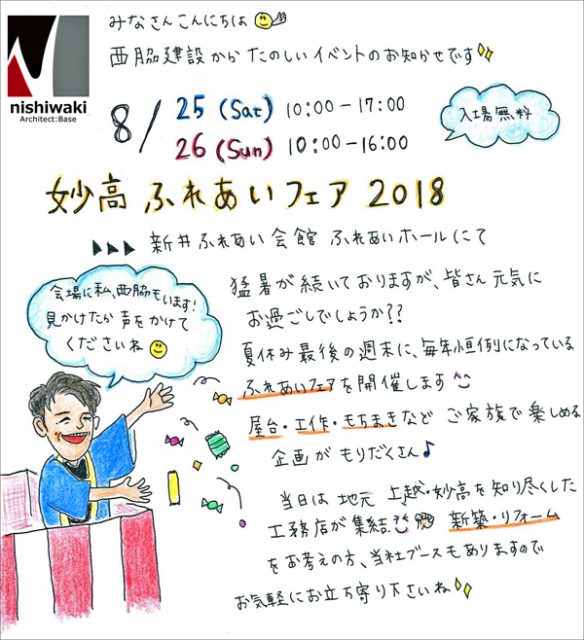 nishiwaki
Architect:Base
みなさんこんにちは
西脇建設から たのしいイベントのお知らせです
8/25 (Sat) 10:00-17:00
26 (Sun) 10:00-16:00
入場無料
妙高 ふれあいフェア 2018
新井ふれあい会館 ふれあいホールにて
会場に私、西脇もいます!
見かけたら声をかけて
くださいね
猛暑が続いておりますが、皆さん元気に
お過ごしでしょうか??
夏休み最後の週末に、毎年恒例になっている
ふれあいフェアを開催します
屋台・工作・もちまきなど ご家族で楽しめる
企画がもりだくさん♪
当日は地元 上越・妙高を知り尽くした
工務店が集結 新築・リフォーム
をお考えの方、当社ブースもありますので
お気軽にお立ち寄り下さいね